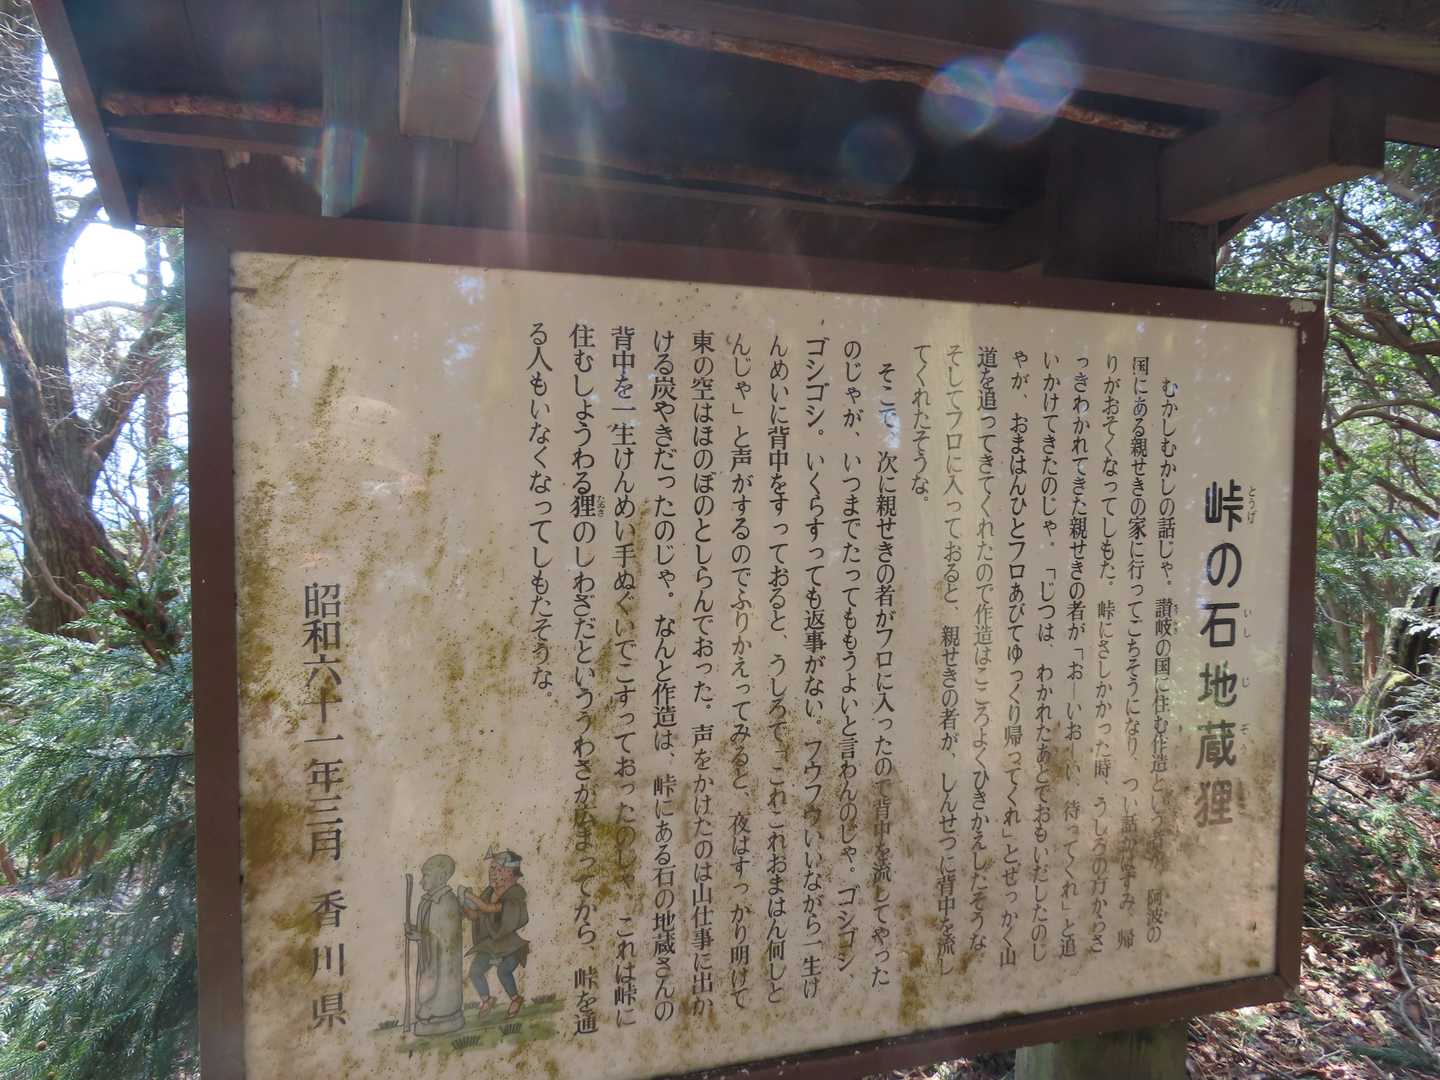 峠の石地蔵狸
とうげ いし じ ぞう
むかしむかしの話じゃ。讃岐の国に住む作造という 阿波の
国にある親せきの家に行ってごちそうになり、つい話がはずみ、帰
りがおそくなってしもた。峠にさしかかった時、うしろの方からさ
っきわかれてきた親せきの者が「おーいおーい、待ってくれ」と追
いかけてきたのじゃ。「じつは、わかれたあとでおもいだしたのじ
ゃが、おまはんひとフロあびてゆっくり帰ってくれ」とせっかく山
道を追ってきてくれたので作造はこころよくひきかえしたそうな。
そしてフロに入っておると、親せきの者が、しんせつに背中を流し
てくれたそうな。
そこで、次に親せきの者がフロに入ったので背中を流してやった
のじゃが、いつまでたってももうよいと言わんのじゃ。ゴシゴシ、
ゴシゴシ。いくらすっても返事がない。フウフウいいながら一生け
んめいに背中をすっておると、うしろで「これこれおまはん何しと
んじゃ」と声がするのでふりかえってみると、夜はすっかり明けて
東の空はほのぼのとしらんでおった。声をかけたのは山仕事に出か
ける炭やきだったのじゃ。なんと作造は、峠にある石の地蔵さんの
背中を一生けんめい手ぬぐいでこすっておったのじゃ。これは峠に
住むしょうわる狸のしわざだといううわさが広まってから、峠を通
たぬき
る人もいなくなってしもたそうな。
昭和六十一年三月 香川県